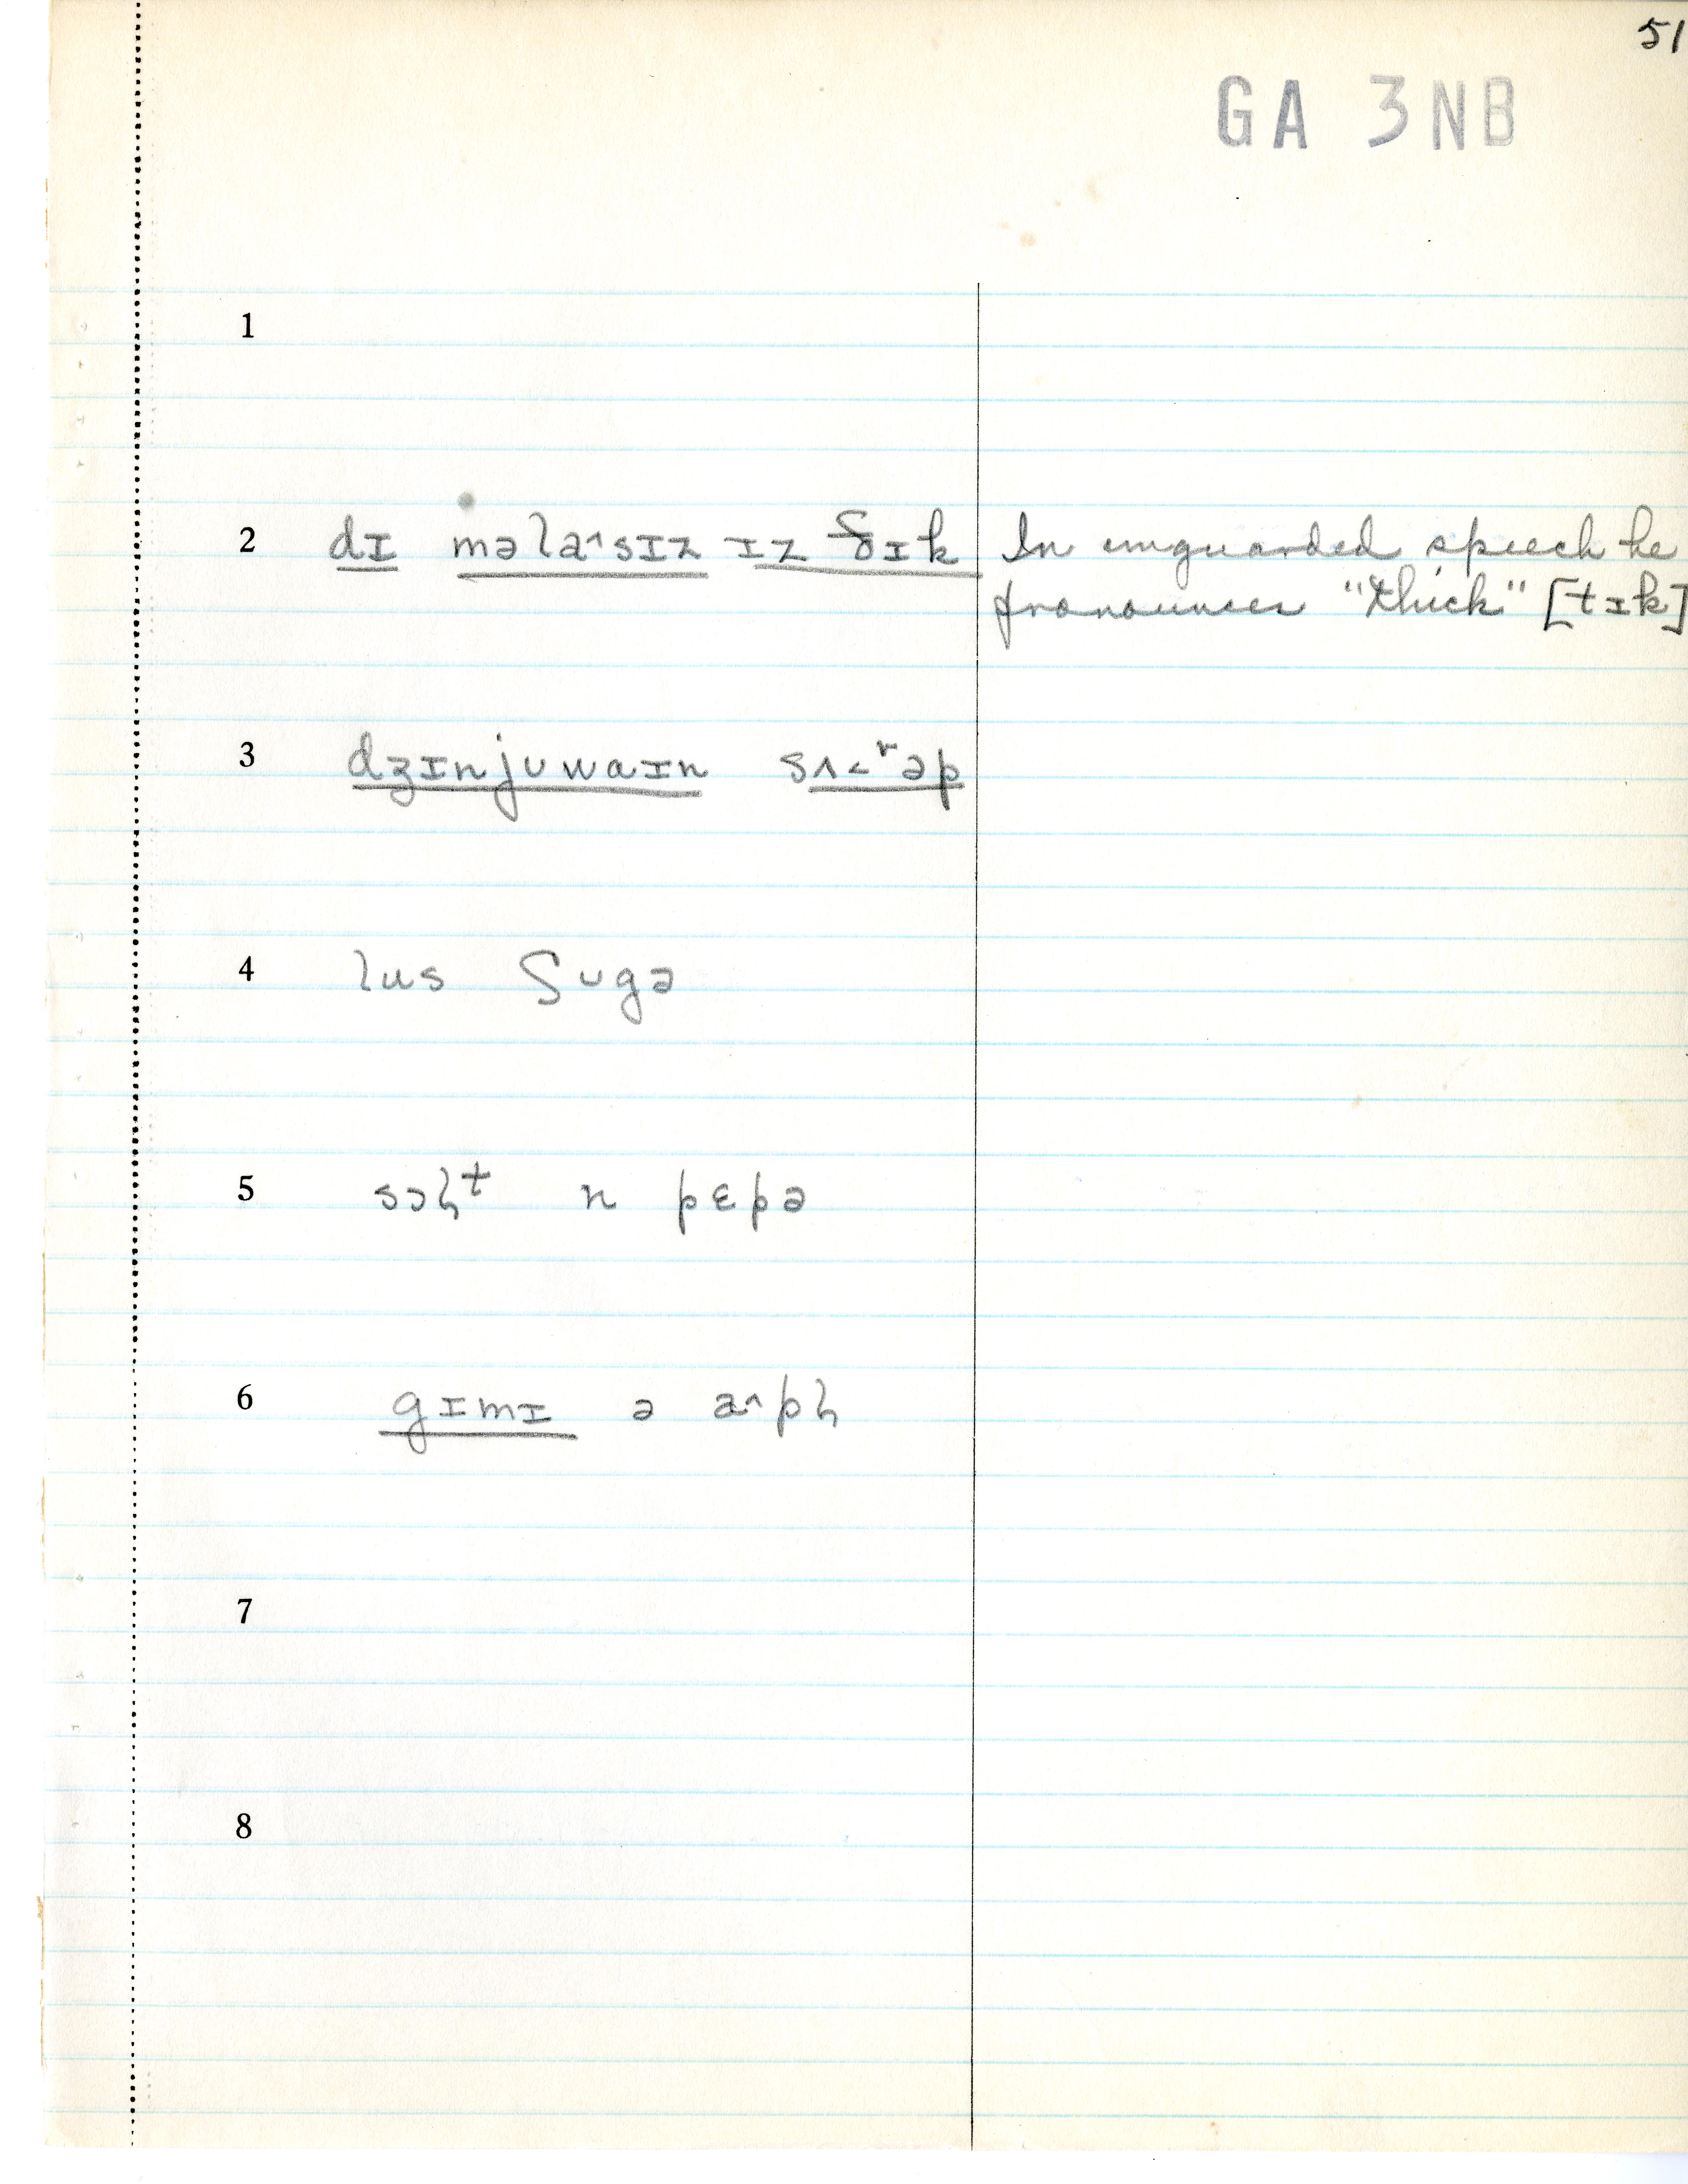 51
GA 3NB
1
2 dɪ məlaˆsɪz ɪz δɪk In unguarded speech he
pronounces "thick" [tɪk]
3 dʒɪnjuwaɪn sʌ<ʳəp
4 lus ʃugə
5 sɔɫᵗ n pɛpə
6 gɪmɪ ə aˆpɫ
7
8